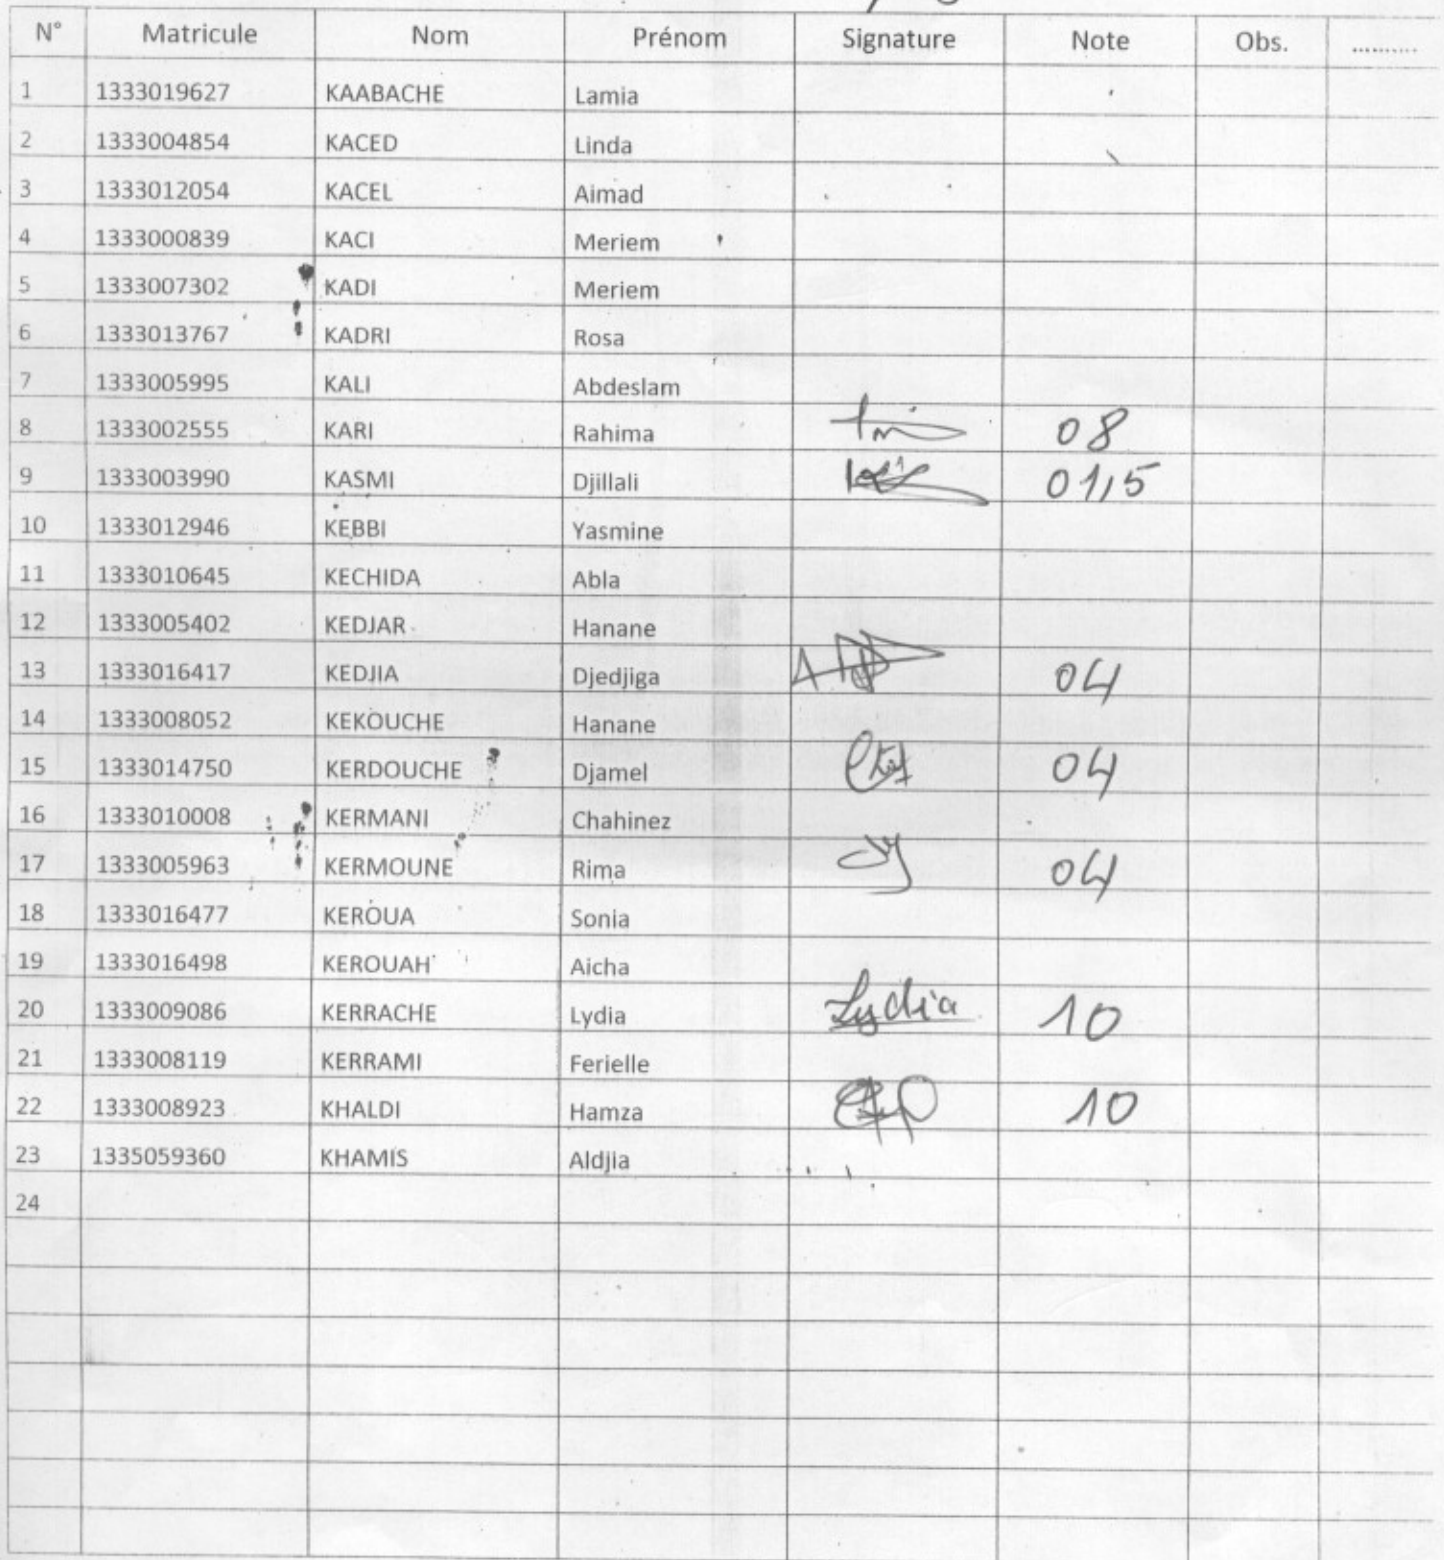 N° Matricule Nom Prénom Signature Note Obs. ..........
1 1333019627 KAABACHE Lamia
2 1333004854 KACED Linda
3 1333012054 KACEL Aimad
4 1333000839 KACI Meriem
5 1333007302 KADI Meriem
6 1333013767 KADRI Rosa
7 1333005995 KALI Abdeslam
8 1333002555 KARI Rahima 08
9 1333003990 KASMI Djillali 01,5
10 1333012946 KEBBI Yasmine
11 1333010645 KECHIDA Abla
12 1333005402 KEDJAR Hanane
13 1333016417 KEDJIA Djedjiga 04
14 1333008052 KEKOUCHE Hanane
15 1333014750 KERDOUCHE Djamel 04
16 1333010008 KERMANI Chahinez
17 1333005963 KERMOUNE Rima 04
18 1333016477 KEROUA Sonia
19 1333016498 KEROUAH Aicha
20 1333009086 KERRACHE Lydia Lydia 10
21 1333008119 KERRAMI Ferielle
22 1333008923 KHALDI Hamza 10
23 1335059360 KHAMIS Aldjia
24